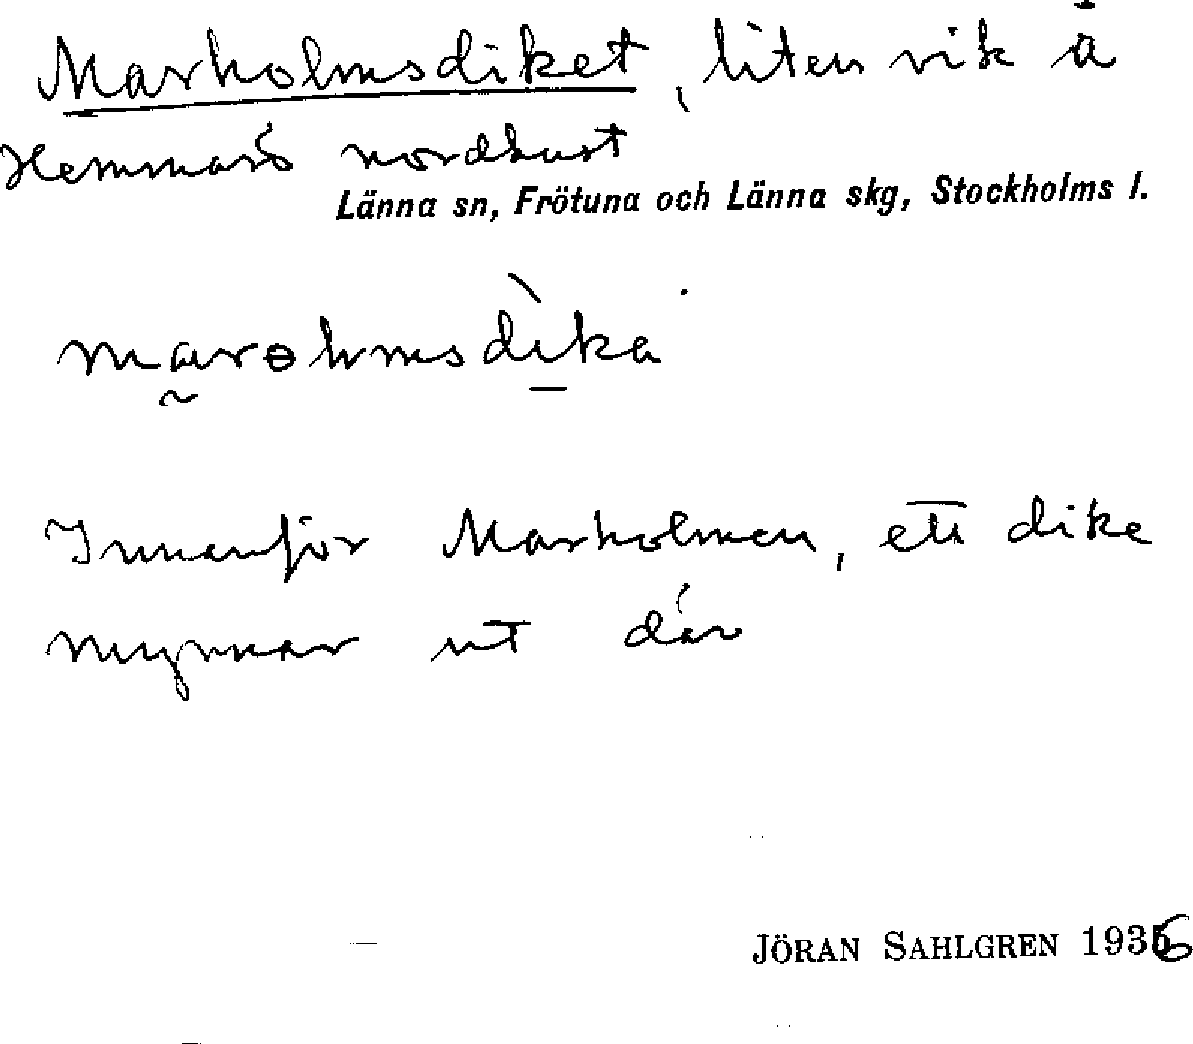 Marholmsdiket, liten vik å
Hemmarö nordkust
Länna sn, Frötuna och Länna skg, Stockholms l.
marɵlmsdika
Innanför Marholmen, ett dike
mynnar ut där
JÖRAN SAHLGREN 1936